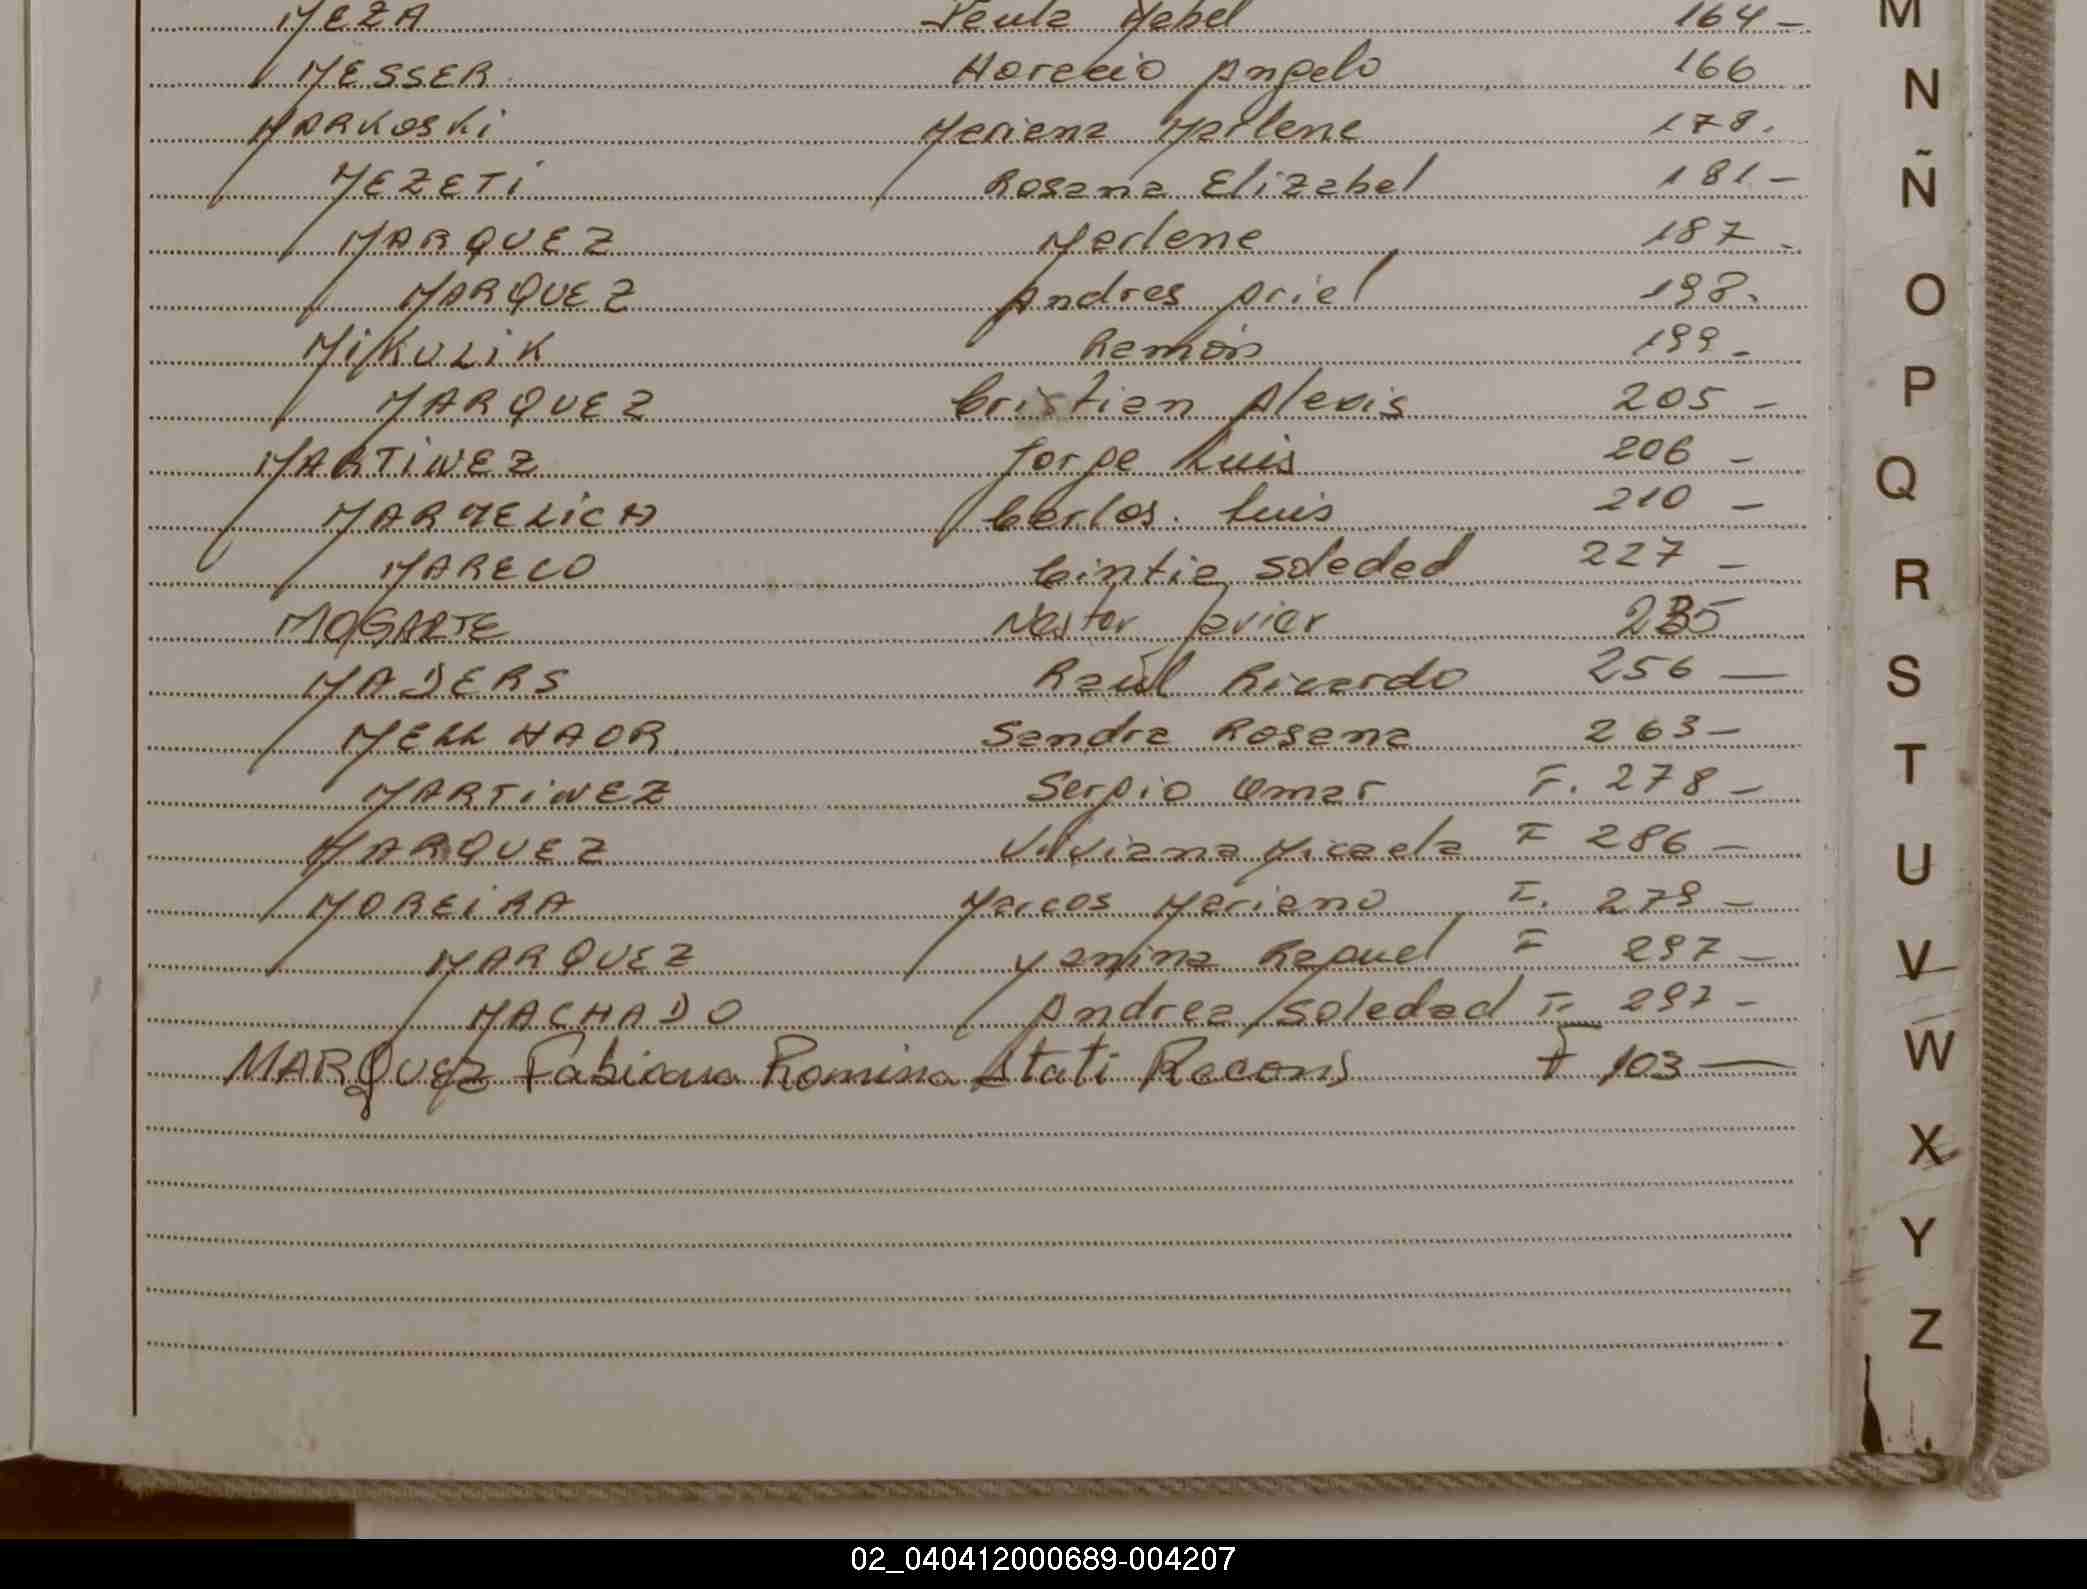 MEZA Paula Mabel 164 -
MESSER Horacio Angelo 166
MARKOSKi Mariana Marlene 178.
MEZETi Rosana Elizabel 181 -
MARQUEZ Marlene 187 -
MARQUEZ Andres Ariel 198.
MiKULiK Ramón 199 -
MARQUEZ Cristian Alexis 205 -
MARTiNEZ Jorge Luis 206 -
MARMELiCH Carlos. Luis 210 -
MARECO Cintia Soledad 227 -
MOGARTE Nestor Javier 235
MADERS Raúl Ricardo 256 —
MELLHAOR Sandra Rosana 263 -
MARTiNEZ Sergio Omar F. 278 -
MARQUEZ Viviana Micaela F 286 -
MOREiRA Marcos Mariano F. 279 -
MARQUEZ Yanina Raquel F 297 -
MACHADO Andrea Soledad F. 297 -
MARQUEZ Fabiana Romina Stati Recons F 103 —
M
N
Ñ
O
P
Q
R
S
T
U
V
W
X
Y
Z
02_040412000689-004207